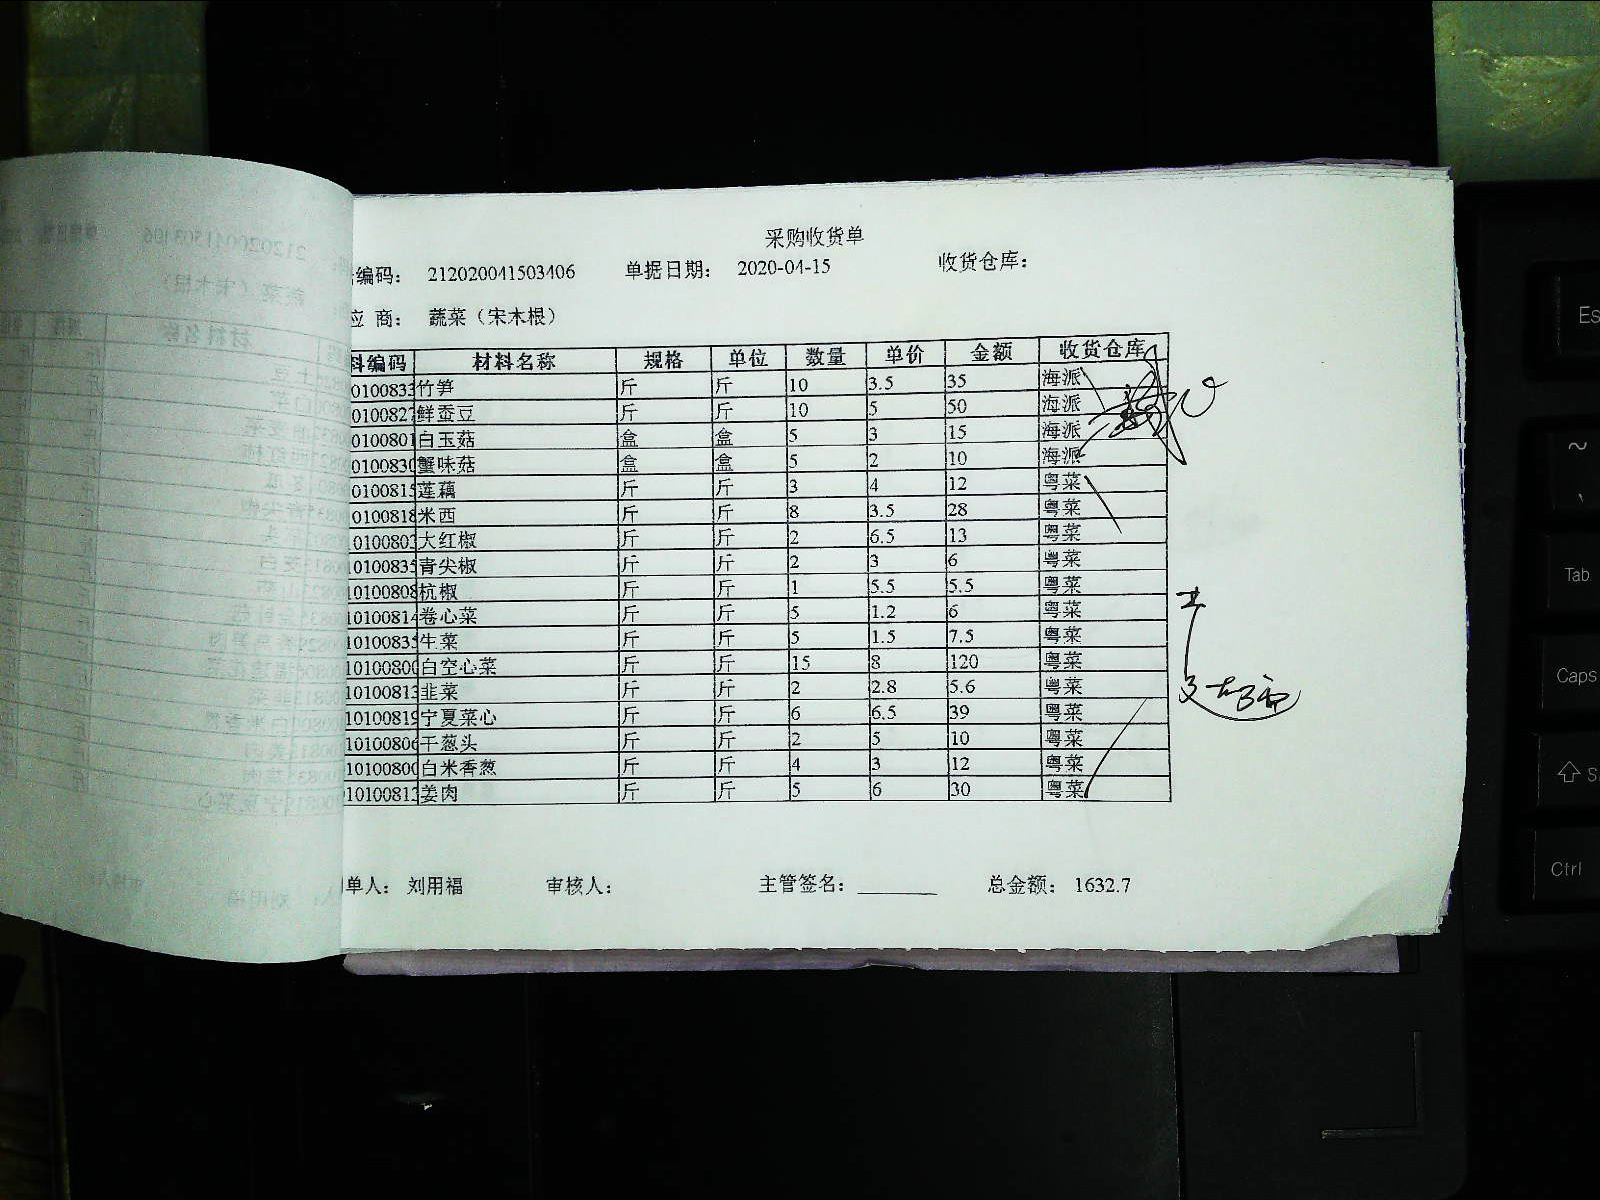 采购收货单
编码： 212020041503406 单据日期： 2020-04-15 收货仓库：
应 商： 蔬菜（宋木根）
料编码 材料名称 规格 单位 数量 单价 金额 收货仓库
0100833 竹笋 斤 斤 10 3.5 35 海派
0100827 鲜蚕豆 斤 斤 10 5 50 海派
0100801 白玉菇 盒 盒 5 3 15 海派
0100830 蟹味菇 盒 盒 5 2 10 海派
0100815 莲藕 斤 斤 3 4 12 粤菜
0100818 米西 斤 斤 8 3.5 28 粤菜
0100803 大红椒 斤 斤 2 6.5 13 粤菜
0100835 青尖椒 斤 斤 2 3 6 粤菜
10100808 杭椒 斤 斤 1 5.5 5.5 粤菜
10100814 卷心菜 斤 斤 5 1.2 6 粤菜
10100835 生菜 斤 斤 5 1.5 7.5 粤菜
10100800 白空心菜 斤 斤 15 8 120 粤菜
10100813 韭菜 斤 斤 2 2.8 5.6 粤菜
10100819 宁夏菜心 斤 斤 6 6.5 39 粤菜
10100806 干葱头 斤 斤 2 5 10 粤菜
10100800 白米香葱 斤 斤 4 3 12 粤菜
10100813 姜肉 斤 斤 5 6 30 粤菜
单人： 刘用福 审核人： 主管签名： 总金额： 1632.7
Es
~
Tab
Caps
S
Ctrl